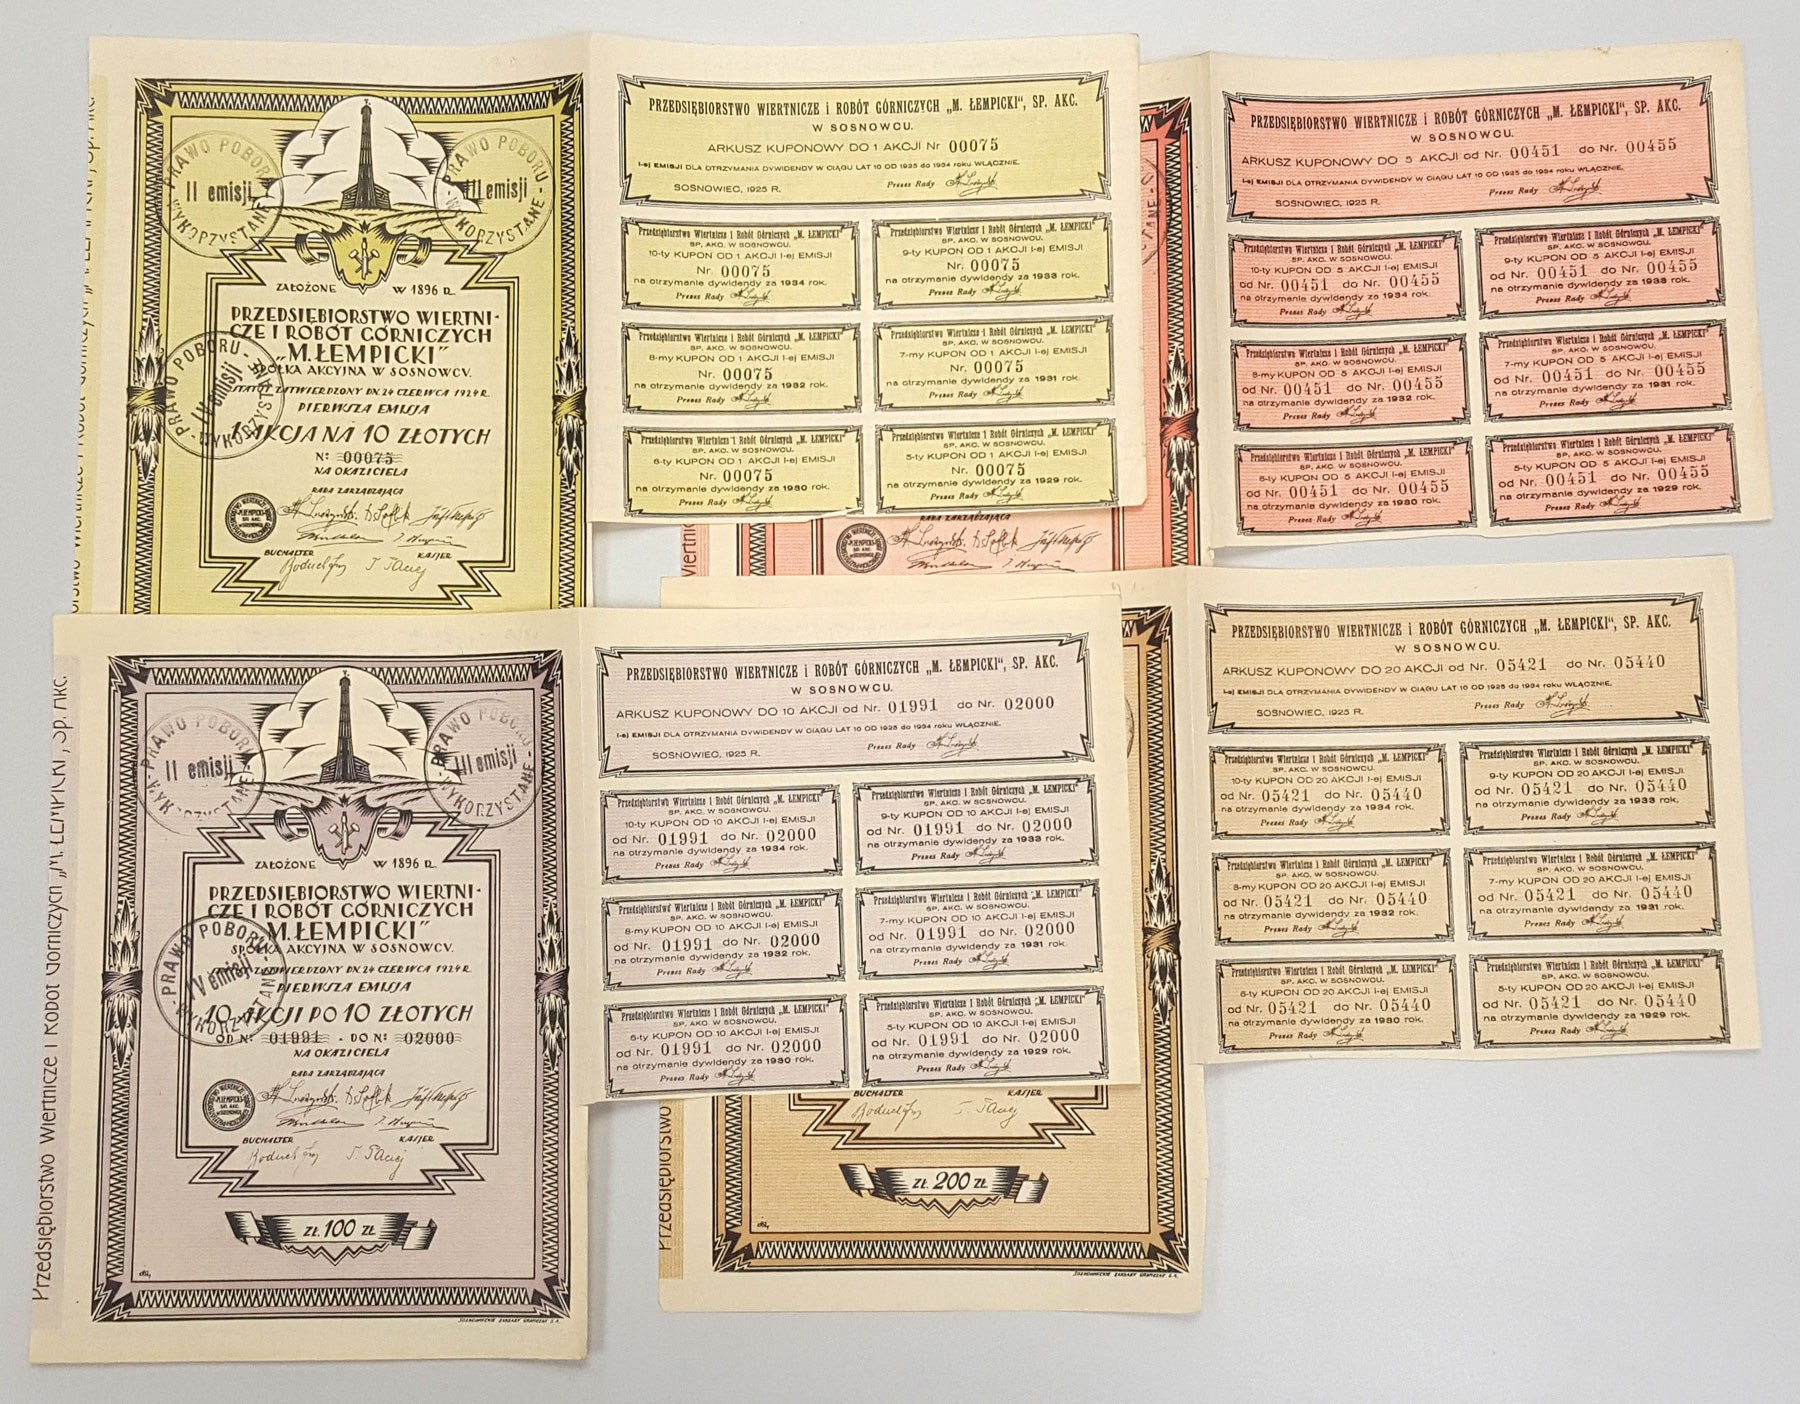 PRAWO POBORU
II emisji
WYKORZYSTANE
PRAWO POBORU
III emisji
WYKORZYSTANE
ZAŁOŻONE W 1896 R.
PRZEDSIĘBIORSTWO WIERTNI-
CZE I ROBÓT GÓRNICZYCH
„M. ŁEMPICKI”
SPÓŁKA AKCYJNA W SOSNOWCU.
STATUT ZATWIERDZONY DN. 24 CZERWCA 1924 R.
PIERWSZA EMISJA
1 AKCJA NA 10 ZŁOTYCH
Nº 00075
NA OKAZICIELA
RADA ZARZĄDZAJĄCA
BUCHALTER KASJER
PRAWO POBORU
IV emisji
WYKORZYSTANE
PRZEDSIĘBIORSTWO WIERTNICZE i ROBÓT GÓRNICZYCH „M. ŁEMPICKI“, SP. AKC.
W SOSNOWCU.
ARKUSZ KUPONOWY DO 1 AKCJI Nr 00075
I-ej EMISJI DLA OTRZYMANIA DYWIDENDY W CIĄGU LAT 10 OD 1925 do 1934 roku WŁĄCZNIE.
SOSNOWIEC, 1925 R. Prezes Rady
Przedsiębiorstwo Wiertnicze i Robót Górniczych „M. ŁEMPICKI“
SP. AKC. W SOSNOWCU.
10-ty KUPON OD 1 AKCJI I-ej EMISJI
Nr. 00075
na otrzymanie dywidendy za 1934 rok.
Prezes Rady
Przedsiębiorstwo Wiertnicze i Robót Górniczych „M. ŁEMPICKI“
SP. AKC. W SOSNOWCU.
9-ty KUPON OD 1 AKCJI I-ej EMISJI
Nr. 00075
na otrzymanie dywidendy za 1933 rok.
Prezes Rady
Przedsiębiorstwo Wiertnicze i Robót Górniczych „M. ŁEMPICKI“
SP. AKC. W SOSNOWCU.
8-my KUPON OD 1 AKCJI I-ej EMISJI
Nr. 00075
na otrzymanie dywidendy za 1932 rok.
Prezes Rady
Przedsiębiorstwo Wiertnicze i Robót Górniczych „M. ŁEMPICKI“
SP. AKC. W SOSNOWCU.
7-my KUPON OD 1 AKCJI I-ej EMISJI
Nr. 00075
na otrzymanie dywidendy za 1931 rok.
Prezes Rady
Przedsiębiorstwo Wiertnicze i Robót Górniczych „M. ŁEMPICKI“
SP. AKC. W SOSNOWCU.
6-ty KUPON OD 1 AKCJI I-ej EMISJI
Nr. 00075
na otrzymanie dywidendy za 1930 rok.
Prezes Rady
Przedsiębiorstwo Wiertnicze i Robót Górniczych „M. ŁEMPICKI“
SP. AKC. W SOSNOWCU.
5-ty KUPON OD 1 AKCJI I-ej EMISJI
Nr. 00075
na otrzymanie dywidendy za 1929 rok.
Prezes Rady
RADA ZARZĄDZAJĄCA
PRZEDSIĘBIORSTWO WIERTNICZE i ROBÓT GÓRNICZYCH „M. ŁEMPICKI“, SP. AKC.
W SOSNOWCU.
ARKUSZ KUPONOWY DO 5 AKCJI od Nr. 00451 do Nr. 00455
I-ej EMISJI DLA OTRZYMANIA DYWIDENDY W CIĄGU LAT 10 OD 1925 do 1934 roku WŁĄCZNIE.
SOSNOWIEC, 1925 R. Prezes Rady
Przedsiębiorstwo Wiertnicze i Robót Górniczych „M. ŁEMPICKI“
SP. AKC. W SOSNOWCU.
10-ty KUPON OD 5 AKCJI I-ej EMISJI
od Nr. 00451 do Nr. 00455
na otrzymanie dywidendy za 1934 rok.
Prezes Rady
Przedsiębiorstwo Wiertnicze i Robót Górniczych „M. ŁEMPICKI“
SP. AKC. W SOSNOWCU.
9-ty KUPON OD 5 AKCJI I-ej EMISJI
od Nr. 00451 do Nr. 00455
na otrzymanie dywidendy za 1933 rok.
Prezes Rady
Przedsiębiorstwo Wiertnicze i Robót Górniczych „M. ŁEMPICKI“
SP. AKC. W SOSNOWCU.
8-my KUPON OD 5 AKCJI I-ej EMISJI
od Nr. 00451 do Nr. 00455
na otrzymanie dywidendy za 1932 rok.
Prezes Rady
Przedsiębiorstwo Wiertnicze i Robót Górniczych „M. ŁEMPICKI“
SP. AKC. W SOSNOWCU.
7-my KUPON OD 5 AKCJI I-ej EMISJI
od Nr. 00451 do Nr. 00455
na otrzymanie dywidendy za 1931 rok.
Prezes Rady
Przedsiębiorstwo Wiertnicze i Robót Górniczych „M. ŁEMPICKI“
SP. AKC. W SOSNOWCU.
6-ty KUPON OD 5 AKCJI I-ej EMISJI
od Nr. 00451 do Nr. 00455
na otrzymanie dywidendy za 1930 rok.
Prezes Rady
Przedsiębiorstwo Wiertnicze i Robót Górniczych „M. ŁEMPICKI“
SP. AKC. W SOSNOWCU.
5-ty KUPON OD 5 AKCJI I-ej EMISJI
od Nr. 00451 do Nr. 00455
na otrzymanie dywidendy za 1929 rok.
Prezes Rady
Przedsiębiorstwo Wiertnicze i Robót Górniczych „M. ŁEMPICKI“, Sp. Akc.
PRAWO POBORU
II emisji
WYKORZYSTANE
PRAWO POBORU
III emisji
WYKORZYSTANE
ZAŁOŻONE W 1896 R.
PRZEDSIĘBIORSTWO WIERTNI-
CZE I ROBÓT GÓRNICZYCH
„M. ŁEMPICKI”
SPÓŁKA AKCYJNA W SOSNOWCU.
STATUT ZATWIERDZONY DN. 24 CZERWCA 1924 R.
PIERWSZA EMISJA
10 AKCJI PO 10 ZŁOTYCH
OD Nº 01991 - DO Nº 02000
NA OKAZICIELA
RADA ZARZĄDZAJĄCA
BUCHALTER KASJER
ZŁ. 100 ZŁ.
SOSNOWIECKIE ZAKŁADY GRAFICZNE S.A.
PRAWO POBORU
IV emisji
WYKORZYSTANE
PRZEDSIĘBIORSTWO WIERTNICZE i ROBÓT GÓRNICZYCH „M. ŁEMPICKI“, SP. AKC.
W SOSNOWCU.
ARKUSZ KUPONOWY DO 10 AKCJI od Nr. 01991 do Nr. 02000
I-ej EMISJI DLA OTRZYMANIA DYWIDENDY W CIĄGU LAT 10 OD 1925 do 1934 roku WŁĄCZNIE.
SOSNOWIEC, 1925 R. Prezes Rady
Przedsiębiorstwo Wiertnicze i Robót Górniczych „M. ŁEMPICKI“
SP. AKC. W SOSNOWCU.
10-ty KUPON OD 10 AKCJI I-ej EMISJI
od Nr. 01991 do Nr. 02000
na otrzymanie dywidendy za 1934 rok.
Prezes Rady
Przedsiębiorstwo Wiertnicze i Robót Górniczych „M. ŁEMPICKI“
SP. AKC. W SOSNOWCU.
9-ty KUPON OD 10 AKCJI I-ej EMISJI
od Nr. 01991 do Nr. 02000
na otrzymanie dywidendy za 1933 rok.
Prezes Rady
Przedsiębiorstwo Wiertnicze i Robót Górniczych „M. ŁEMPICKI“
SP. AKC. W SOSNOWCU.
8-my KUPON OD 10 AKCJI I-ej EMISJI
od Nr. 01991 do Nr. 02000
na otrzymanie dywidendy za 1932 rok.
Prezes Rady
Przedsiębiorstwo Wiertnicze i Robót Górniczych „M. ŁEMPICKI“
SP. AKC. W SOSNOWCU.
7-my KUPON OD 10 AKCJI I-ej EMISJI
od Nr. 01991 do Nr. 02000
na otrzymanie dywidendy za 1931 rok.
Prezes Rady
Przedsiębiorstwo Wiertnicze i Robót Górniczych „M. ŁEMPICKI“
SP. AKC. W SOSNOWCU.
6-ty KUPON OD 10 AKCJI I-ej EMISJI
od Nr. 01991 do Nr. 02000
na otrzymanie dywidendy za 1930 rok.
Prezes Rady
Przedsiębiorstwo Wiertnicze i Robót Górniczych „M. ŁEMPICKI“
SP. AKC. W SOSNOWCU.
5-ty KUPON OD 10 AKCJI I-ej EMISJI
od Nr. 01991 do Nr. 02000
na otrzymanie dywidendy za 1929 rok.
Prezes Rady
Przedsiębiorstwo
BUCHALTER KASJER
ZŁ. 200 ZŁ.
SOSNOWIECKIE ZAKŁADY GRAFICZNE S.A.
PRZEDSIĘBIORSTWO WIERTNICZE i ROBÓT GÓRNICZYCH „M. ŁEMPICKI“, SP. AKC.
W SOSNOWCU.
ARKUSZ KUPONOWY DO 20 AKCJI od Nr. 05421 do Nr. 05440
I-ej EMISJI DLA OTRZYMANIA DYWIDENDY W CIĄGU LAT 10 OD 1925 do 1934 roku WŁĄCZNIE.
SOSNOWIEC, 1925 R. Prezes Rady
Przedsiębiorstwo Wiertnicze i Robót Górniczych „M. ŁEMPICKI“
SP. AKC. W SOSNOWCU.
10-ty KUPON OD 20 AKCJI I-ej EMISJI
od Nr. 05421 do Nr. 05440
na otrzymanie dywidendy za 1934 rok.
Prezes Rady
Przedsiębiorstwo Wiertnicze i Robót Górniczych „M. ŁEMPICKI“
SP. AKC. W SOSNOWCU.
9-ty KUPON OD 20 AKCJI I-ej EMISJI
od Nr. 05421 do Nr. 05440
na otrzymanie dywidendy za 1933 rok.
Prezes Rady
Przedsiębiorstwo Wiertnicze i Robót Górniczych „M. ŁEMPICKI“
SP. AKC. W SOSNOWCU.
8-my KUPON OD 20 AKCJI I-ej EMISJI
od Nr. 05421 do Nr. 05440
na otrzymanie dywidendy za 1932 rok.
Prezes Rady
Przedsiębiorstwo Wiertnicze i Robót Górniczych „M. ŁEMPICKI“
SP. AKC. W SOSNOWCU.
7-my KUPON OD 20 AKCJI I-ej EMISJI
od Nr. 05421 do Nr. 05440
na otrzymanie dywidendy za 1931 rok.
Prezes Rady
Przedsiębiorstwo Wiertnicze i Robót Górniczych „M. ŁEMPICKI“
SP. AKC. W SOSNOWCU.
6-ty KUPON OD 20 AKCJI I-ej EMISJI
od Nr. 05421 do Nr. 05440
na otrzymanie dywidendy za 1930 rok.
Prezes Rady
Przedsiębiorstwo Wiertnicze i Robót Górniczych „M. ŁEMPICKI“
SP. AKC. W SOSNOWCU.
5-ty KUPON OD 20 AKCJI I-ej EMISJI
od Nr. 05421 do Nr. 05440
na otrzymanie dywidendy za 1929 rok.
Prezes Rady